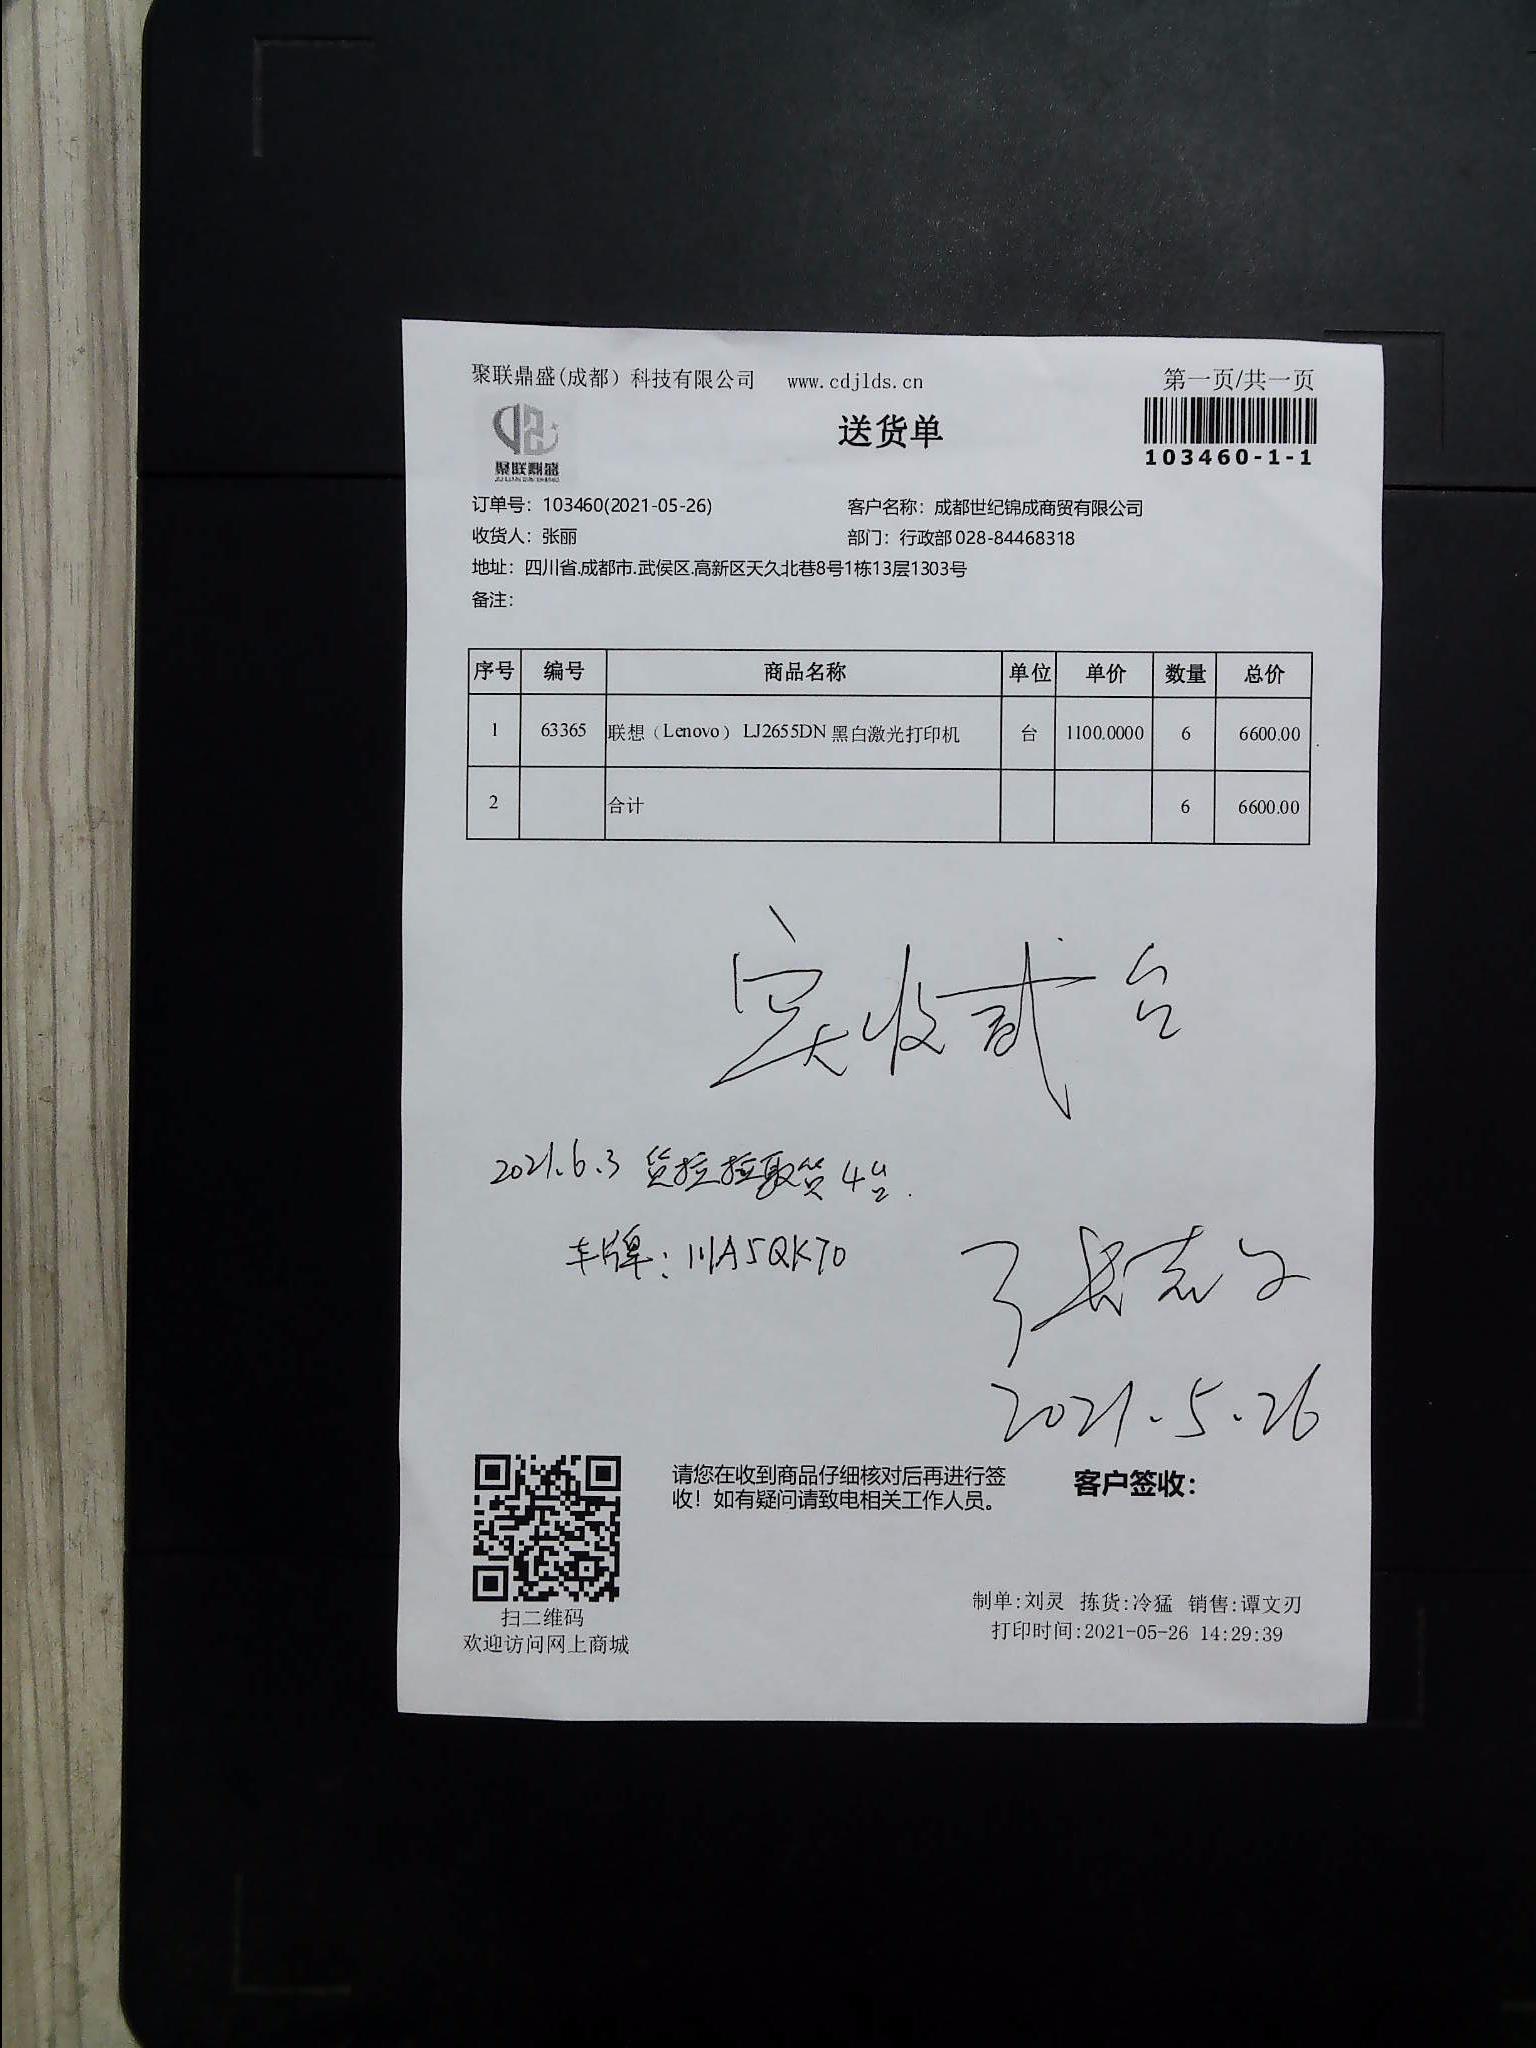 聚联鼎盛(成都）科技有限公司 www.cdjlds.cn
第一页/共一页
聚联鼎盛
送货单
103460-1-1
订单号：103460(2021-05-26)
客户名称：成都世纪锦成商贸有限公司
收货人：张丽
部门：行政部 028-84468318
地址：四川省.成都市.武侯区.高新区天久北巷8号1栋13层1303号
备注：
序号 编号 商品名称 单位 单价 数量 总价
1 63365 联想（Lenovo） LJ2655DN 黑白激光打印机 台 1100.0000 6 6600.00
2 合计 6 6600.00
实收贰台
2021.6.3 货拉拉取货4台.
车牌：川A5QK70
2021.5.26
请您在收到商品仔细核对后再进行签
收！如有疑问请致电相关工作人员。
客户签收：
扫二维码
欢迎访问网上商城
制单:刘灵 拣货:冷猛 销售:谭文刃
打印时间:2021-05-26 14:29:39